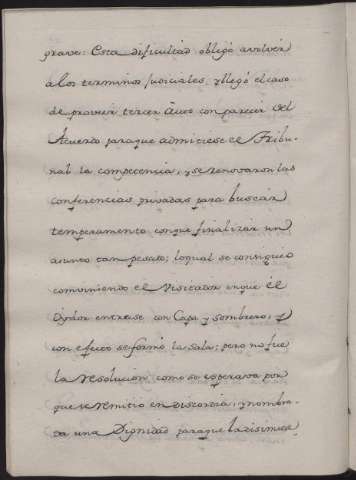 grave: Esta dificultad obligó a volver
a los terminos judiciales, y llegó el caso
de proveer tercer Auto con parecer del
Acuerdo paraque admitiese el Tribu-
nal la competencia, y se renovaron las
conferencias privadas para buscar
temperamento conque finalizar un
asunto tan pesado; loqual se consiguió
conviniendo el Visitador en que el
Oydor entrase con Capa y sombrero; y
con efecto se formó la Sala; pero no fue
la resolucion como se esperava por
que se remitio en discordia, y nombra-
da una Dignidad paraque la dirimiese